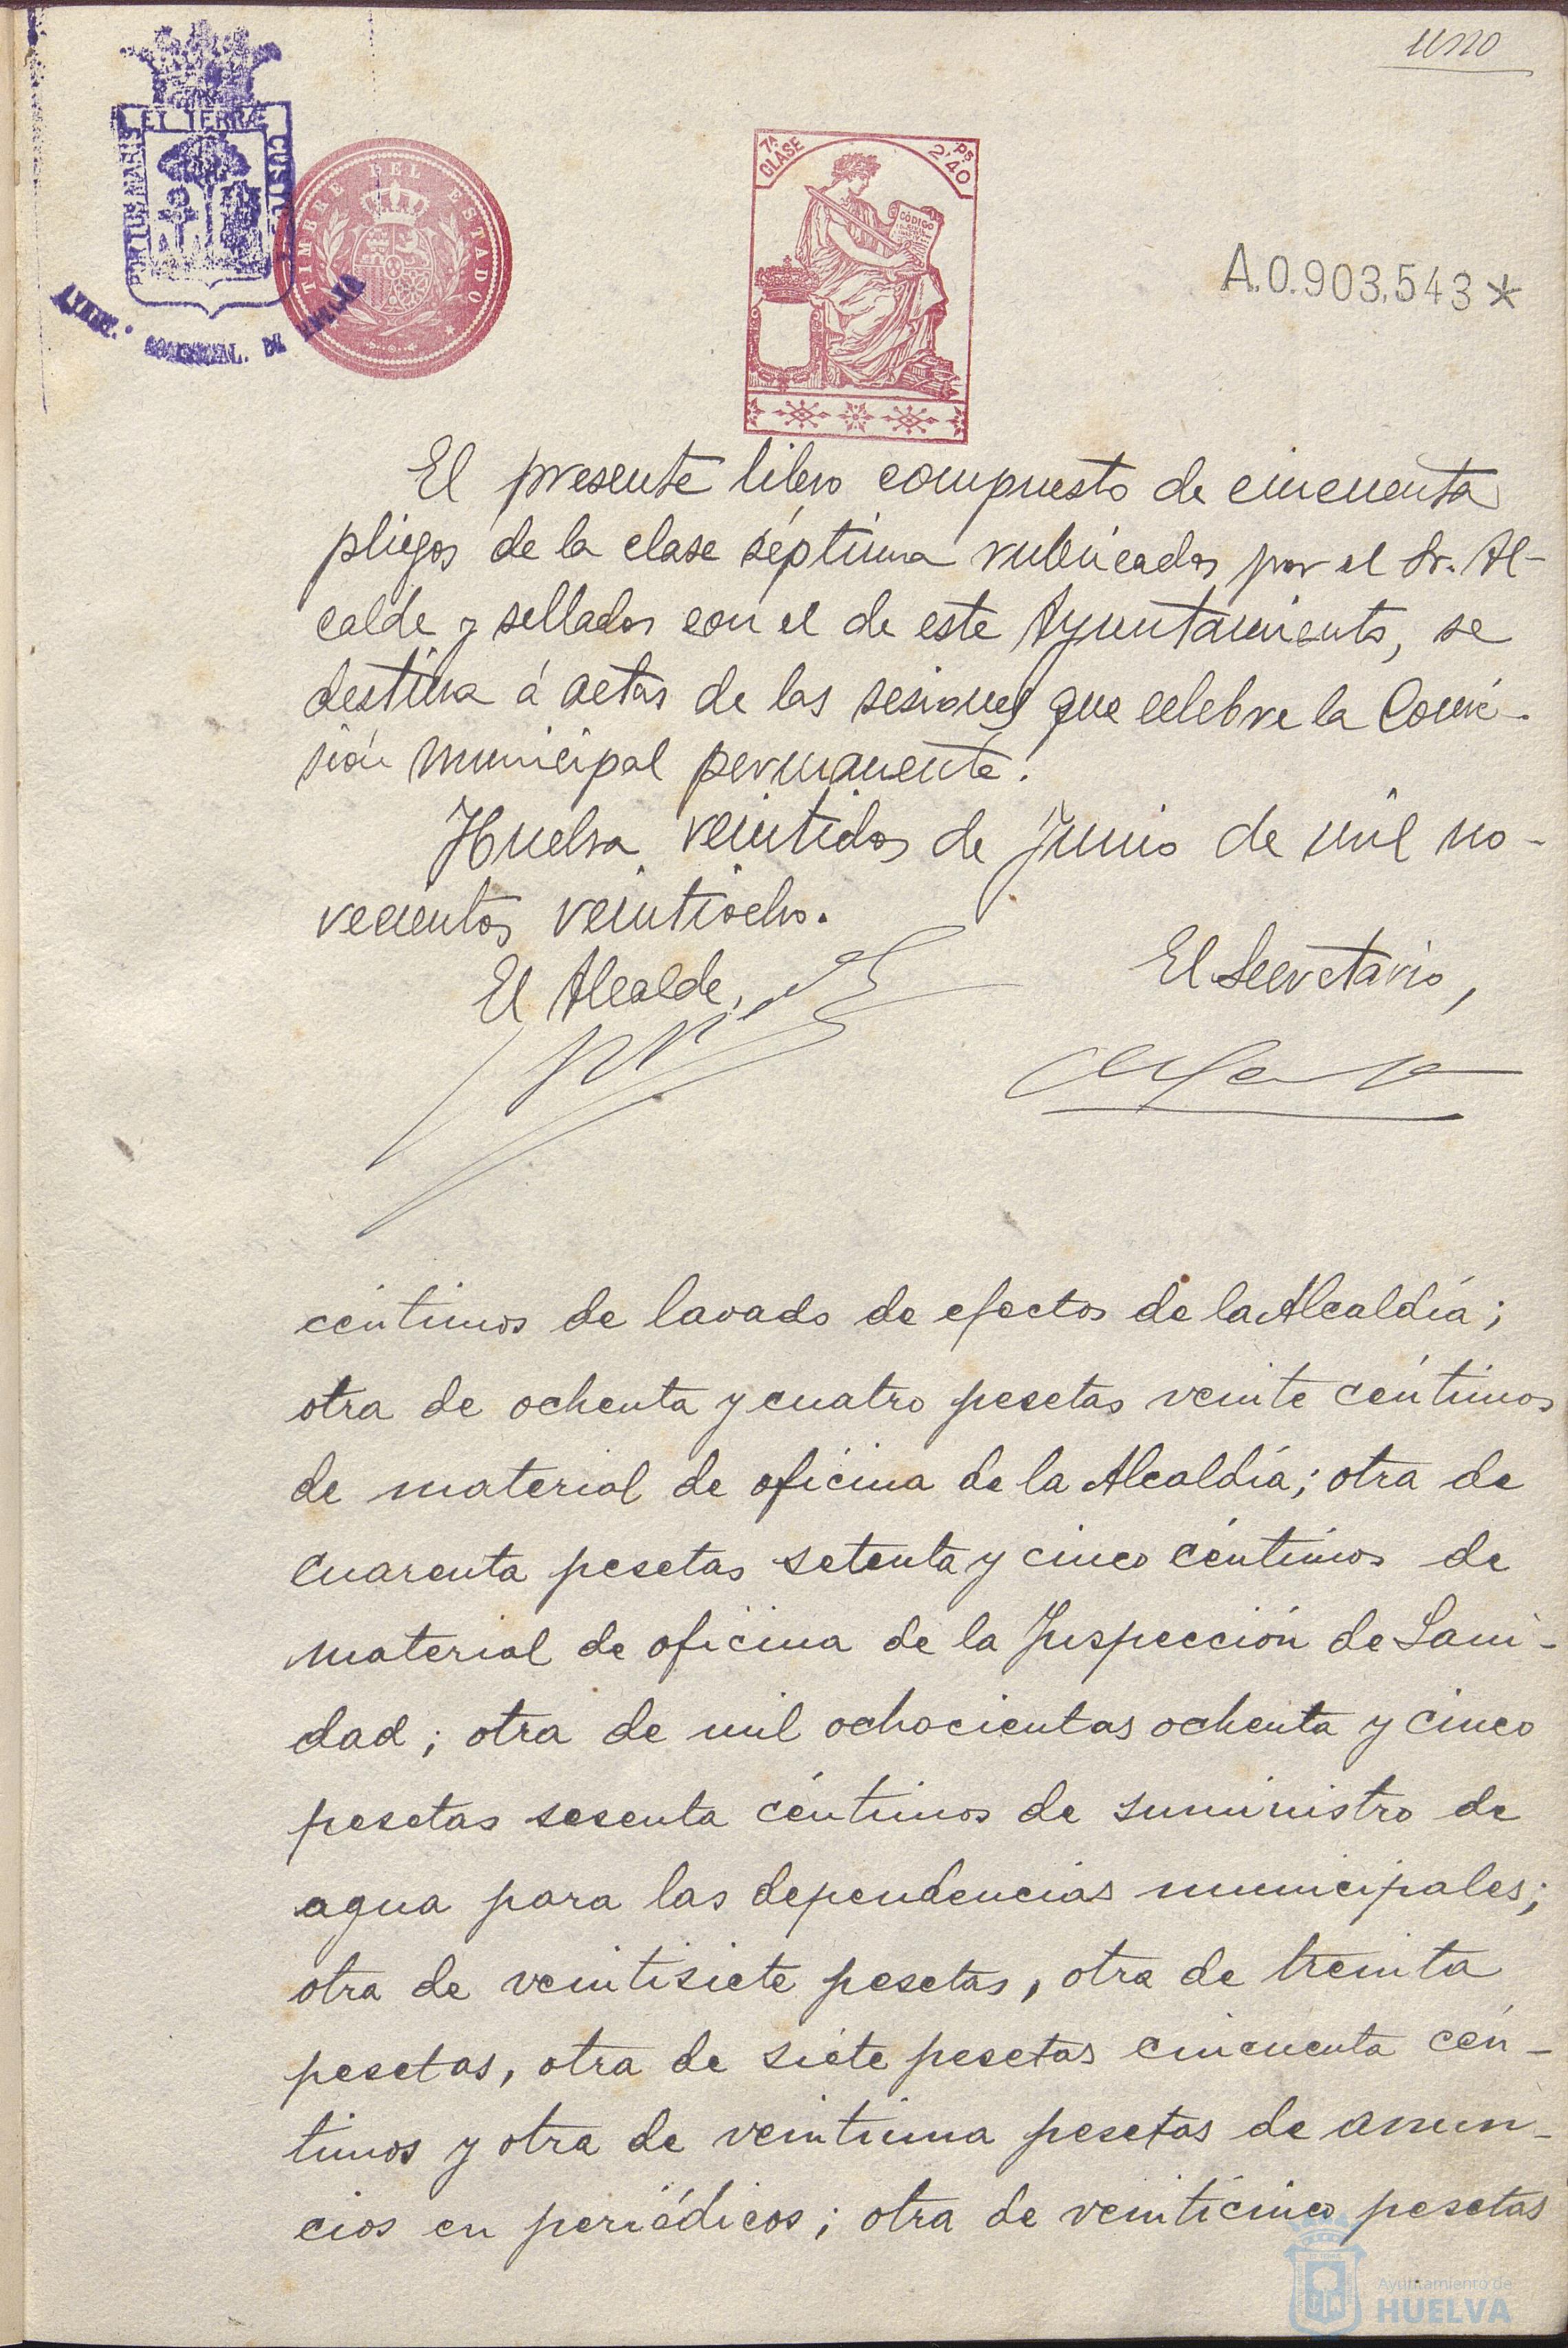 uno
EL TERRÆ
TIMBRE DEL ESTADO
7ª CLASE
Ps 2'40
CÓDIGO
A.0.903,543*
El presente libro compuesto de cincuenta
pliegos de la clase séptima rubricados por el Sr. Al-
calde y sellados con el de este Ayuntamiento, se
destina á actas de las sesiones que celebre la Comi-
sión municipal permanente.
Huelva veintidos de Junio de mil no-
vecientos veintiocho.
El Alcalde,
El Secretario,
céntimos de lavado de efectos de la Alcaldía;
otra de ochenta y cuatro pesetas veinte céntimos
de material de oficina de la Alcaldía; otra de
cuarenta pesetas setenta y cinco céntimos de
material de oficina de la Inspección de Sani-
dad; otra de mil ochocientas ochenta y cinco
pesetas sesenta céntimos de suministro de
agua para las dependencias municipales;
otra de veintisiete pesetas, otra de treinta
pesetas, otra de siete pesetas cincuenta cén-
timos y otra de veintiuna pesetas de anun-
cios en periódicos; otra de veinticinco pesetas
Ayuntamiento de
HUELVA